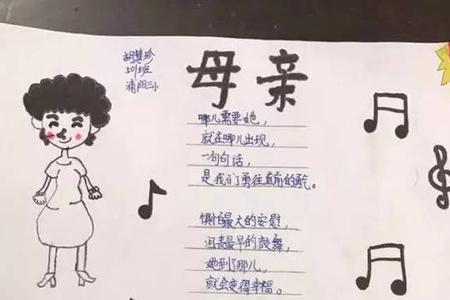 母亲
胡慧珍
501班
浦阳三小
哪儿需要她，
就在哪儿出现，
一句句话，
是我们勇往直前的勇气。
惧怕最大的安慰，
最早的鼓舞，
她到了哪儿，
就会变得幸福。